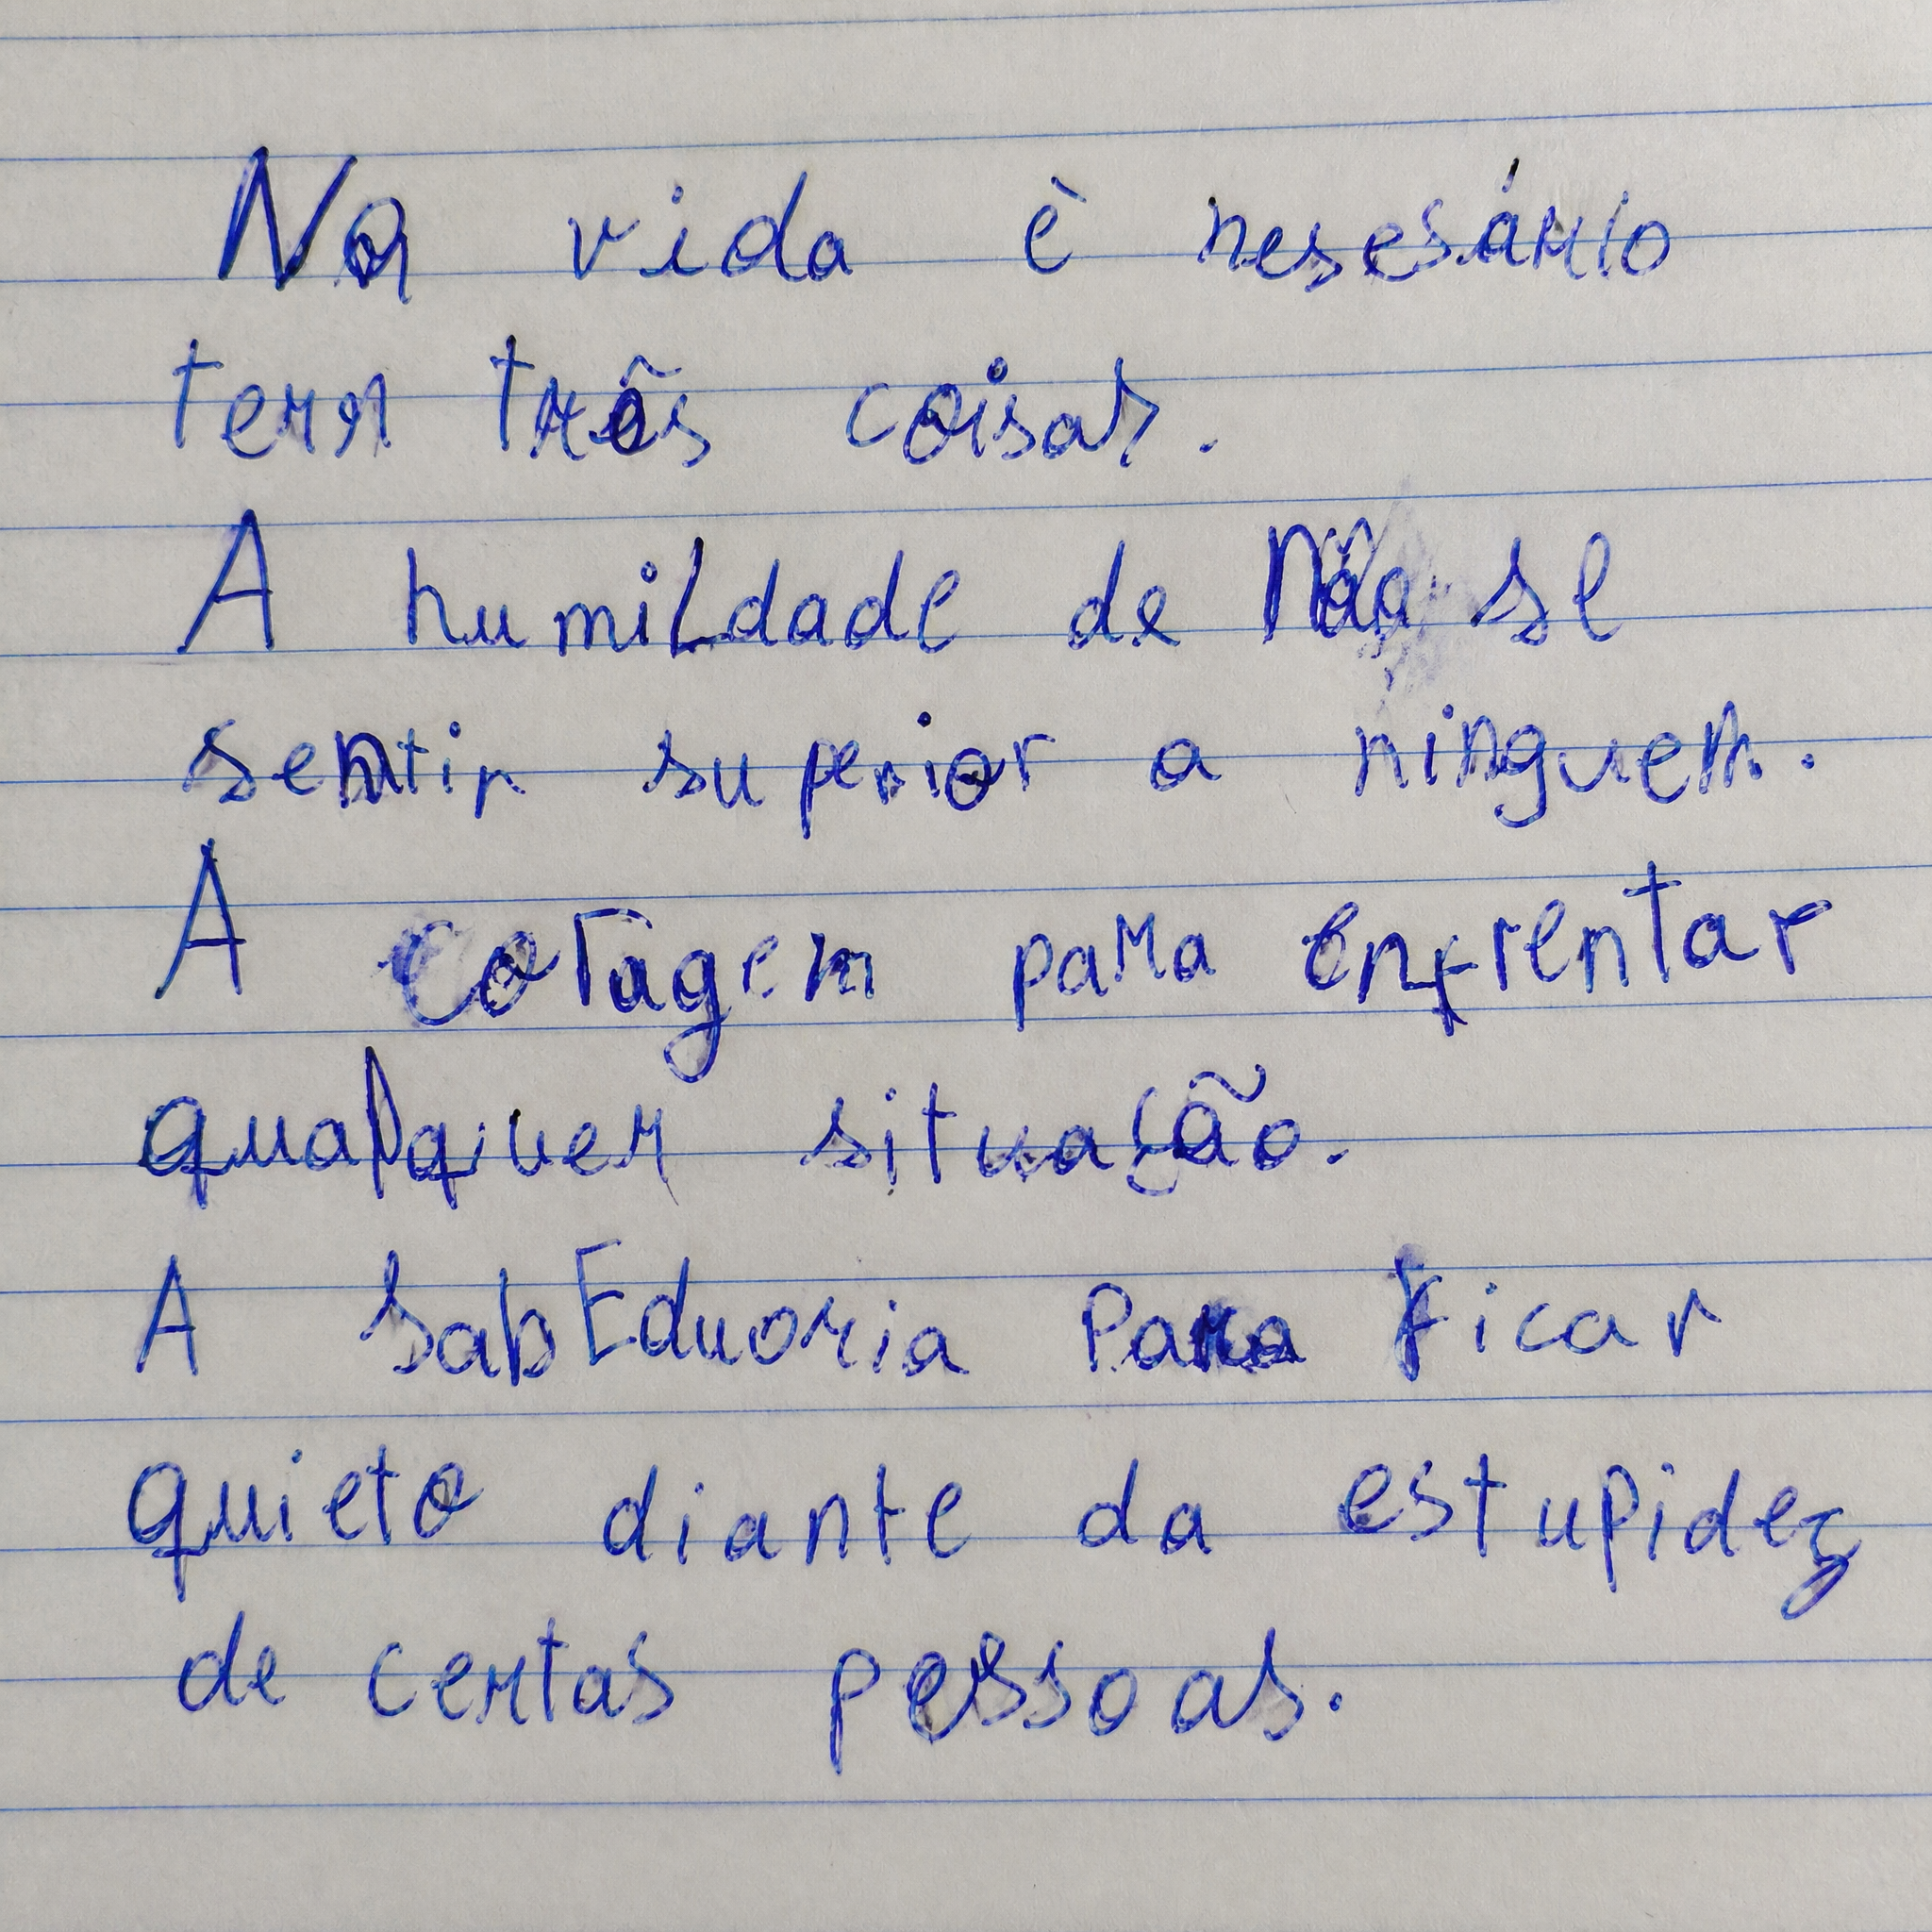 Na vida è nesesário
tern três coisas.
A humildade de Não se
sentir superior a ninguem.
A coragem para enfrentar
qualquer situação.
A sabEduoria Para ficar
quieto diante da estupidez
de certas pessoas.